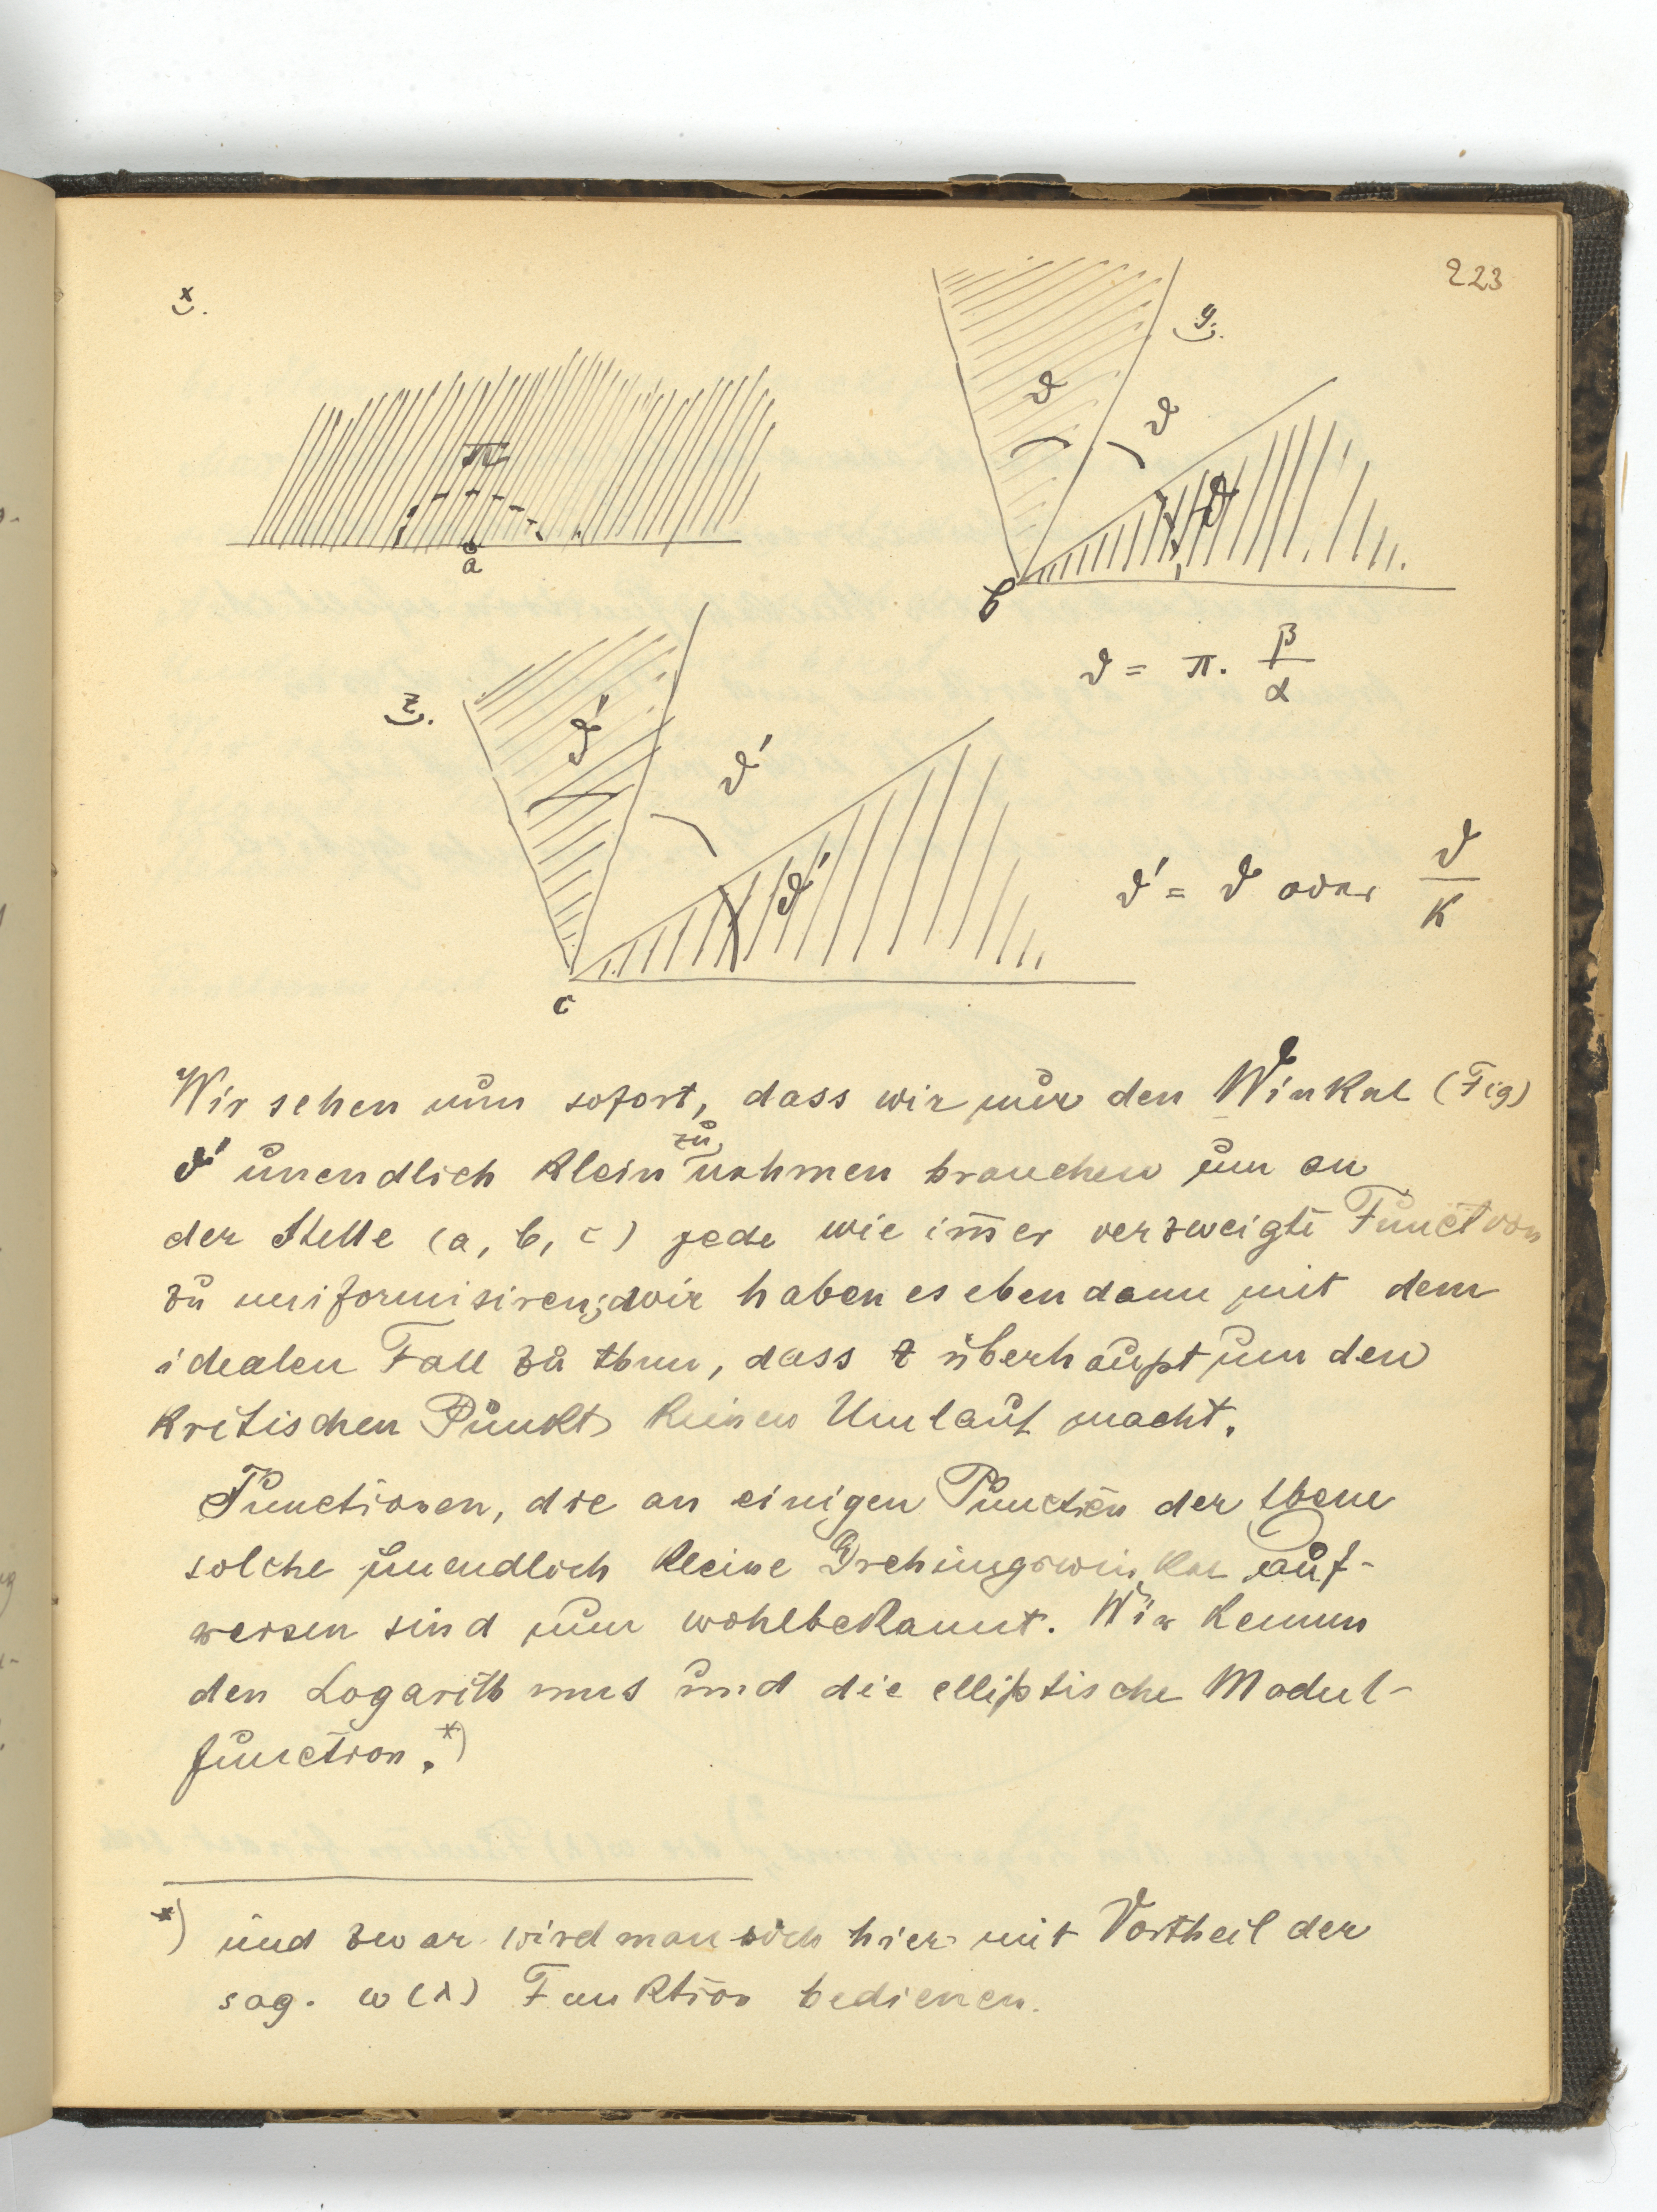 223
x.
y.
π
a
ϑ
ϑ
ϑ
b
ϑ = π. β/α
z.
ϑ'
ϑ'
ϑ'
c
ϑ' = ϑ oder ϑ/k
Wir sehen nun sofort, dass wir nur den Winkel (Fig)
ϑ' unendlich klein zu nehmen brauchen um an
der Stelle (a, b, c) jede wie im̅er verzweigte Function
zu uniformisiren; wir haben es eben dann mit dem
idealen Fall zu thun, dass z überhaupt um den
kritischen Punkt keinen Umlauf macht.
Functionen, die an einigen Puncten der Ebene
solche unendlich kleine Drehungswinkel auf-
weisen sind nun wohlbekannt. Wir kennen
den Logarithmus und die elliptische Modul-
function.*)
*) und zwar wird man sich hier mit Vortheil der
sog. ω(λ) Funktion bedienen.